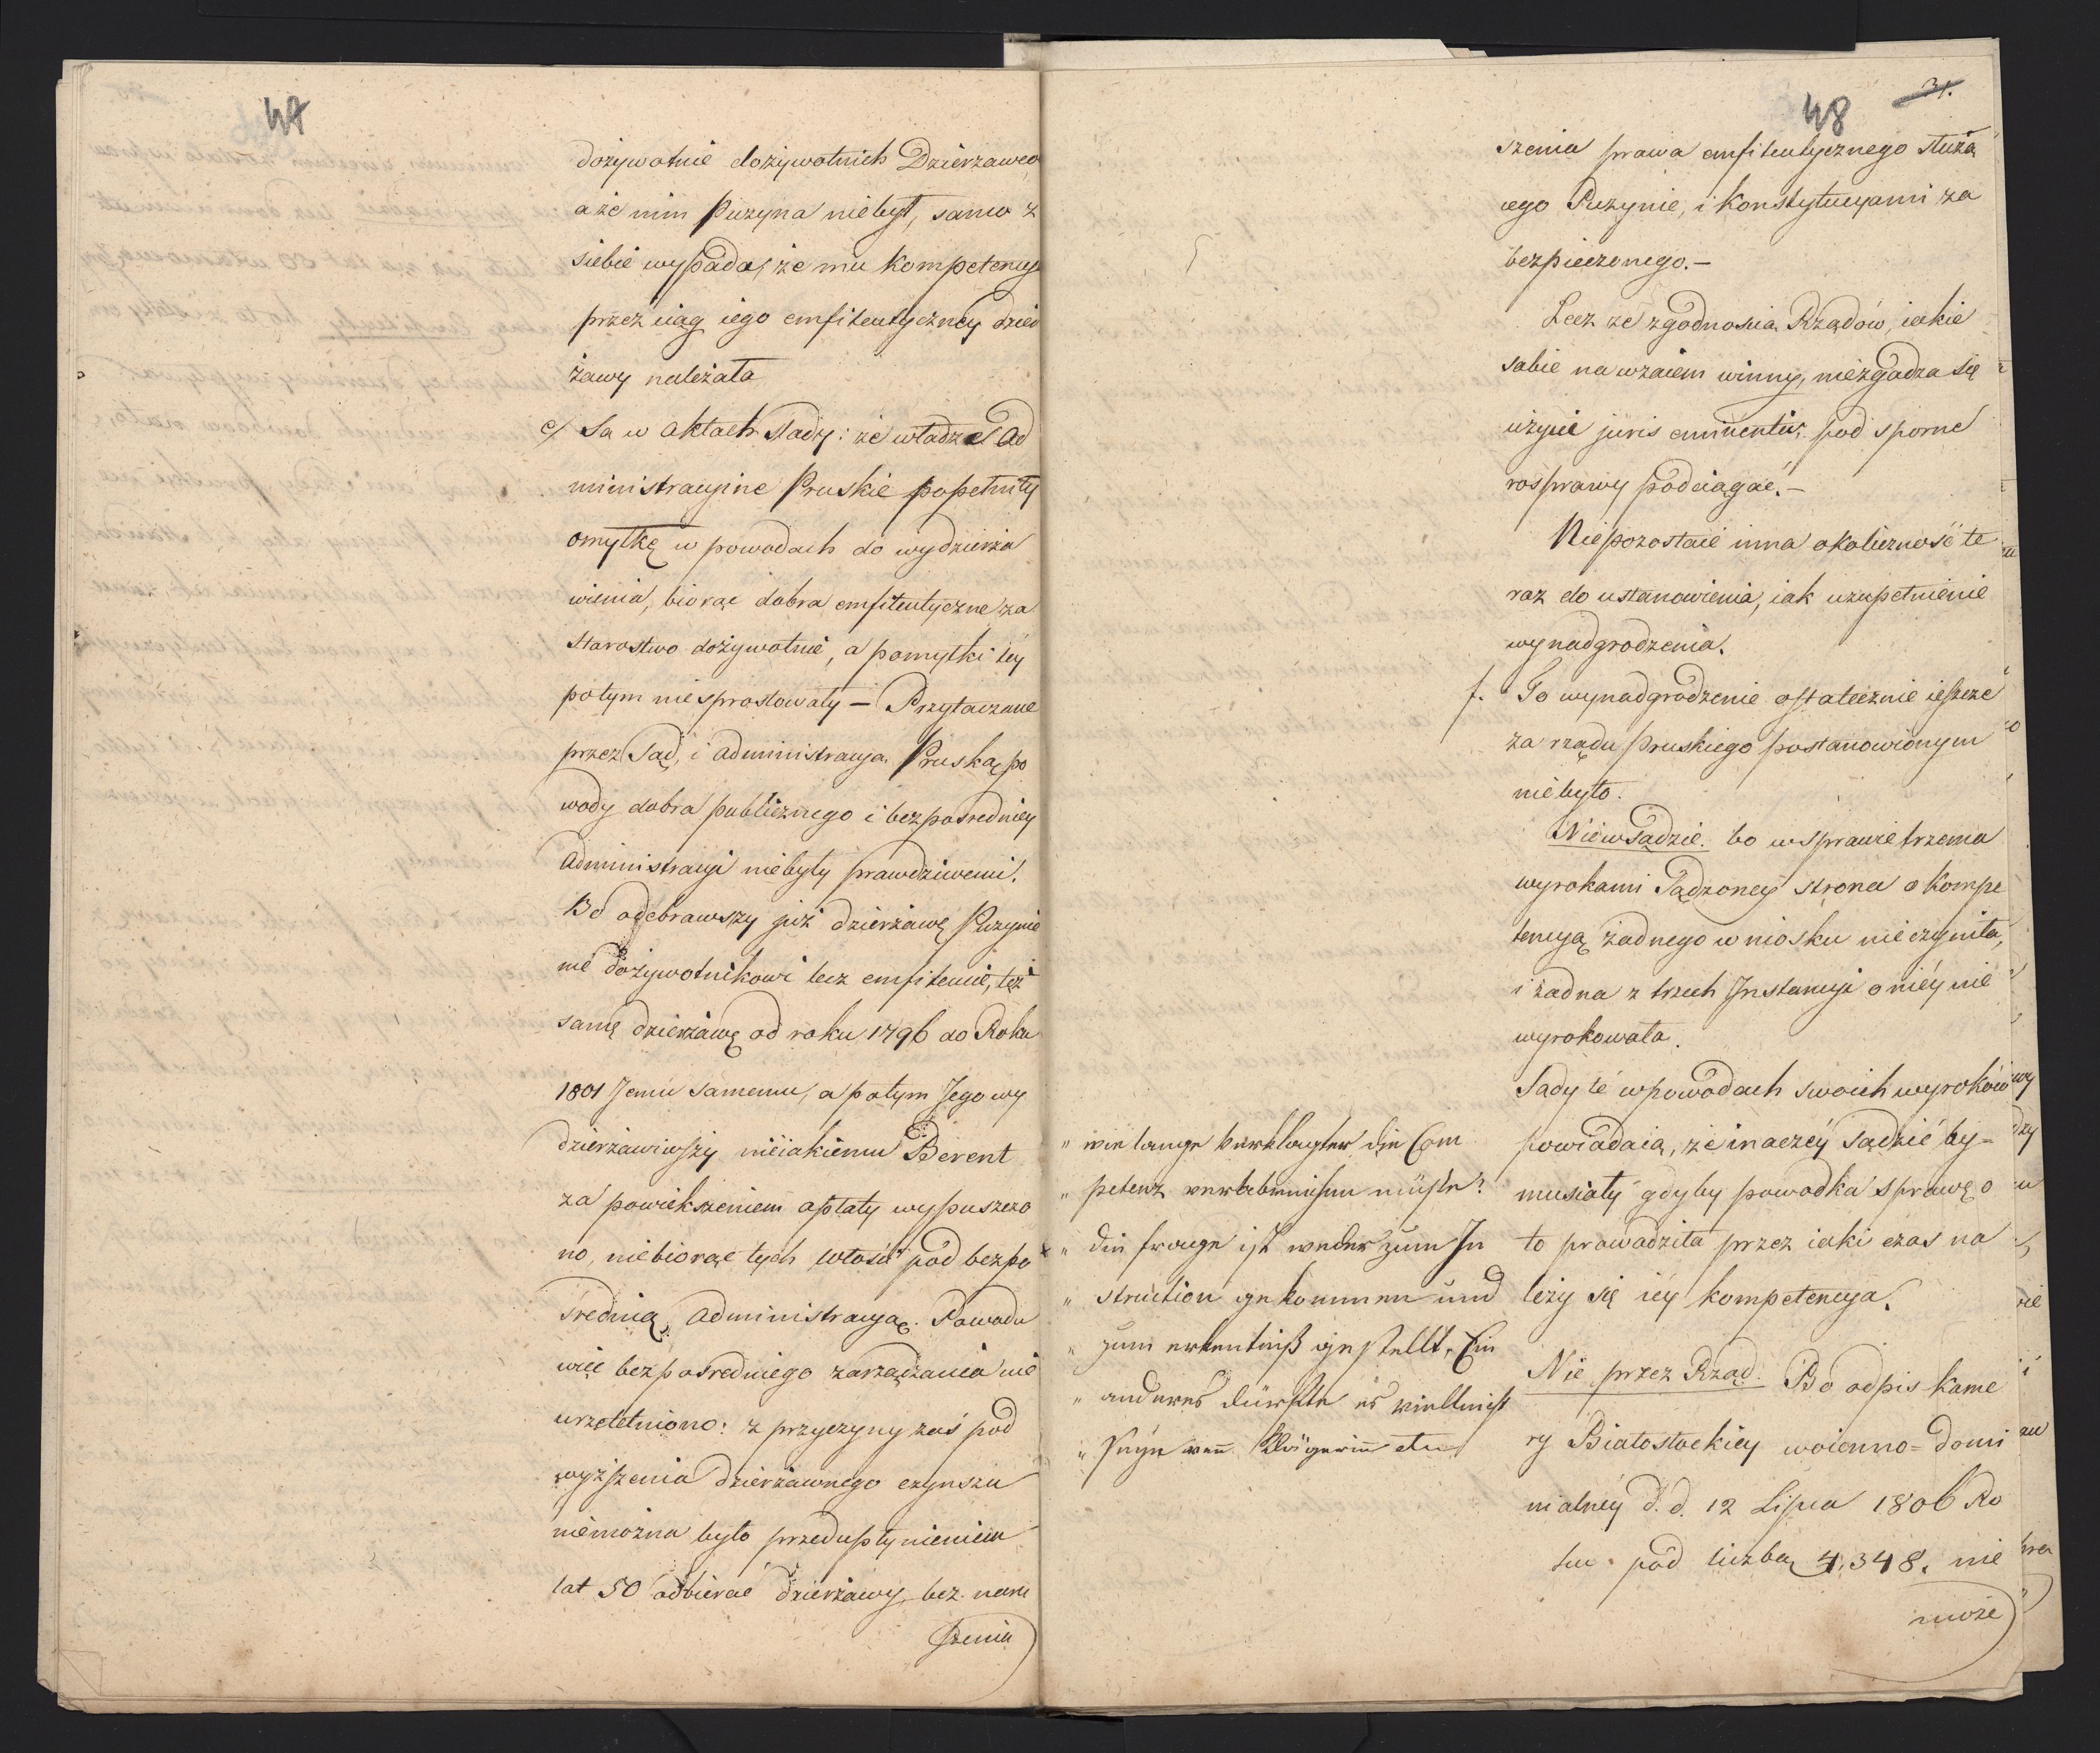 47
dożywotnie dożywotnich Dzierzawco
a że nim Puzyna niebył, samo z
siebie wypada, że mu kompetencya
przez ciąg iego emfiteutyczney dzier
żawy należała
e/ Są w aktach ślady: że władze Ad
ministracyine Pruskie popełniły
omyłkę w powodach do wydzierża
wienia, biorąc dobra emfiteutyczne za
Starostwo dożywotnie, a pomyłki tey
potym niesprostowały — Przytaczane
przez Sąd, i administracyą Pruską po
wody dobra publicznego i bezpośredniey
Administracyi niebyły prawdziwemi.
Bo odebrawszy już dzierżawę Puzynie
nie dożywotnikowi lecz emfiteucie, też
samę dzierżawę od roku 1796 do Roku
1801 Jemu samemu, a potym Jego wy
dzierżawiwszy nieiakiemu Berent
za powiekszeniem opłaty wypuszczo
no, niebiorąc tych włości pod bezpo
średnią Administracyą. Powodu
więc bezpośredniego zarządzania nie
urzetelniono: z przyczyny zaś pod
wyższenia dzierżawnego czynszu
niemożna było przedupłynieniem
lat 50 odbierać dzierżawy, bez naru
szenia
48 31.
szenia prawa emfiteutycznego służą
cego Puzynie, i Konstytucyami za
bezpieczonego.—
Lecz ze zgodnością Rządów, iakie
sobie nawzaiem winny, niezgadza się
użycie juris eminentis, pod sporne
rosprawy podciągać.—
Niepozostaie inna okoliczność te
raz do ustanowienia, iak uzupełnienie
wynadgrodzenia.
f. To wynadgrodzenie ostatecznie ieszcze
za rządu Pruskiego postanowionym
niebyło.
Niewsądzie. bo w sprawie trzema
wyrokami Sądzoney strona o Kompe
tencyą żadnego wniosku nieczyniła,
i żadna z trzech Instancyi o niéy nie
wyrokowała.
Sądy te w powodach swoich wyroków
powiadaią, że inaczéy Sądzić by=
musiały gdyby powodka sprawę o
to prowadziła przez iaki czas na
leży się iéy kompetencya.
„ wie lange Verklagter die Com
„ petenz verabreichen müste?
x „ die frage ist weder zum In
„ struction gekommen und
„ zum erkentniß gestellt. Ein
„ anderes dürfte es vielleicht
„ seyn wen Klägerin etc
Nie przez Rząd. Bo odpis Kame
ry Białostockiey woienno=domi
nialnéy d. d. 12 Lipca 1806 Ro
ku pod liczbą 4,348. nie
może